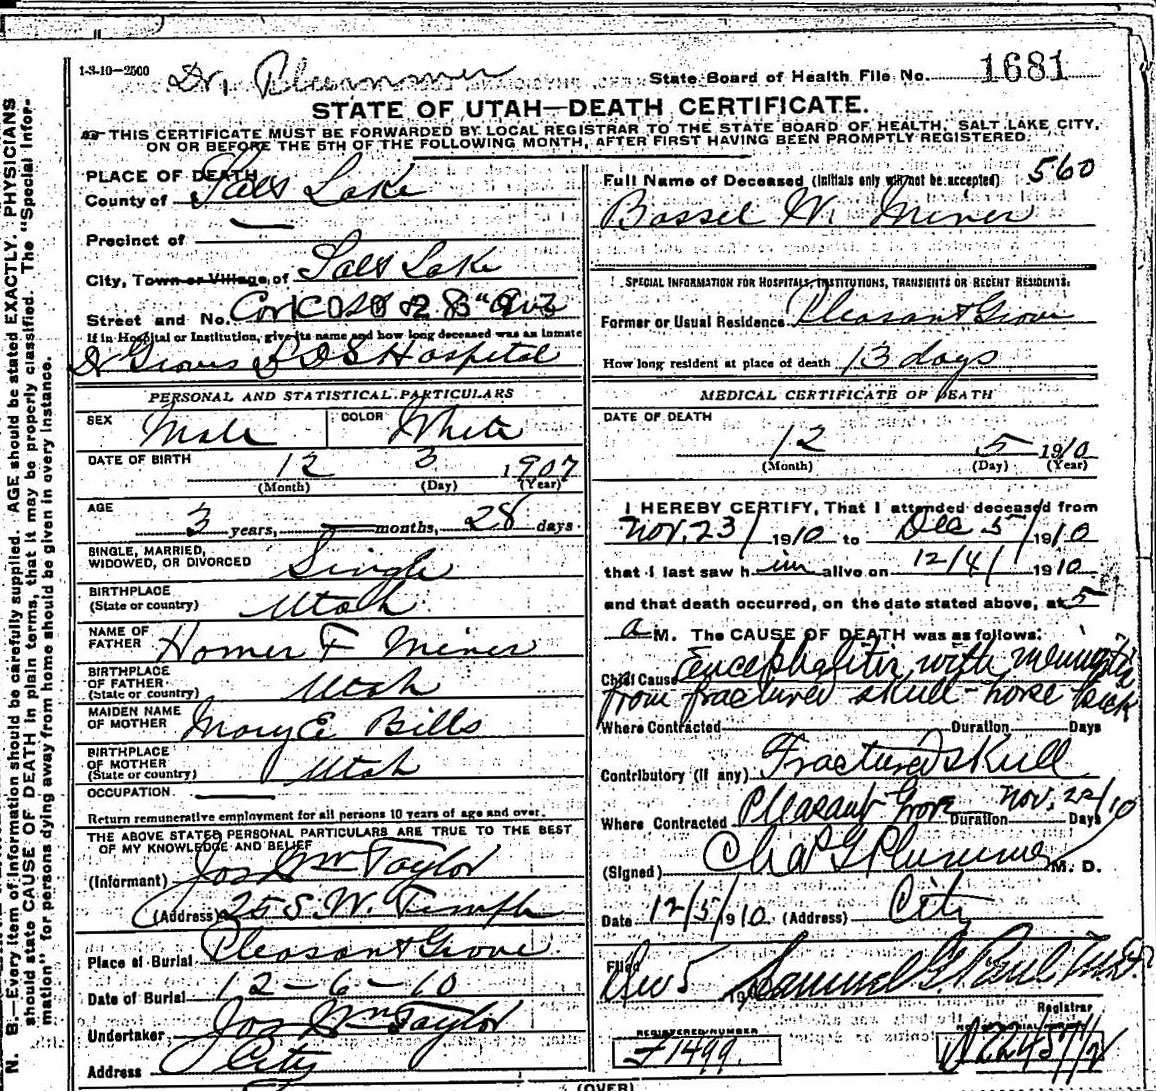 1-3-10-2500 Dr. Plummer State Board of Health File No. 1681
STATE OF UTAH—DEATH CERTIFICATE.
THIS CERTIFICATE MUST BE FORWARDED BY LOCAL REGISTRAR TO THE STATE BOARD OF HEALTH, SALT LAKE CITY,
ON OR BEFORE THE 5TH OF THE FOLLOWING MONTH, AFTER FIRST HAVING BEEN PROMPTLY REGISTERED.
N. B.—Every item of information should be carefully supplied. AGE should be stated EXACTLY. PHYSICIANS
should state CAUSE OF DEATH in plain terms, that it may be properly classified. The "Special Infor-
mation" for persons dying away from home should be given in every instance.
PLACE OF DEATH
County of Salt Lake
Precinct of
City, Town or Village, of Salt Lake
Street and No. Cor C St & 8" Ave
If in Hospital or Institution, give its name and how long deceased was an inmate
Dr Groves LDS Hospital
PERSONAL AND STATISTICAL PARTICULARS
SEX Male COLOR White
DATE OF BIRTH 12 3 1907
(Month) (Day) (Year)
AGE 3 years, months, 28 days.
SINGLE, MARRIED,
WIDOWED, OR DIVORCED Single
BIRTHPLACE
(State or country) Utah
NAME OF
FATHER Homer F Miner
BIRTHPLACE
OF FATHER
(State or country) Utah
MAIDEN NAME
OF MOTHER Mary E Bills
BIRTHPLACE
OF MOTHER
(State or country) Utah
OCCUPATION
Return remunerative employment for all persons 10 years of age and over.
THE ABOVE STATED PERSONAL PARTICULARS ARE TRUE TO THE BEST
OF MY KNOWLEDGE AND BELIEF
(Informant) Jos Wm Taylor
(Address) 25 S. W. Temple
Place of Burial Pleasant Grove
Date of Burial 12-6-10
Undertaker Jos Wm Taylor
Address City
Full Name of Deceased (Initials only will not be accepted) 560
Bassel W. Miner
SPECIAL INFORMATION FOR HOSPITALS, INSTITUTIONS, TRANSIENTS OR RECENT RESIDENTS.
Former or Usual Residence Pleasant Grove
How long resident at place of death 13 days
MEDICAL CERTIFICATE OF DEATH
DATE OF DEATH
12 5 1910
(Month) (Day) (Year)
I HEREBY CERTIFY, That I attended deceased from
Nov. 23/ 1910 to Dec 5/ 1910
that I last saw him alive on 12/4/ 1910
and that death occurred, on the date stated above, at 5
a M. The CAUSE OF DEATH was as follows:
Chief Cause Encephalitis with meningitis
from fractured skull - horse kick
Where Contracted Duration Days
Contributory (if any) Fractured skull
Where Contracted Pleasant Grove Duration Nov. 22/10 Days
(Signed) Chas G Plummer M. D.
Date 12/5/1910 (Address) City
Filed Dec 5 19 Samuel G. Paul
Registrar
REGISTERED NUMBER
F1499
(OVER)